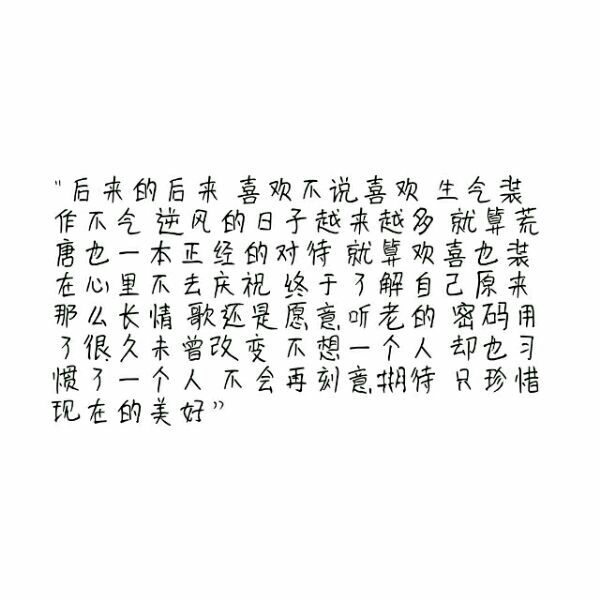 "后来的后来 喜欢不说喜欢 生气装
作不气 逆风的日子越来越多 就算荒
唐也一本正经的对待 就算欢喜也装
在心里不去庆祝 终于了解自己原来
那么长情 歌还是愿意听老的 密码用
了很久未曾改变 不想一个人 却也习
惯了一个人 不会再刻意期待 只珍惜
现在的美好”